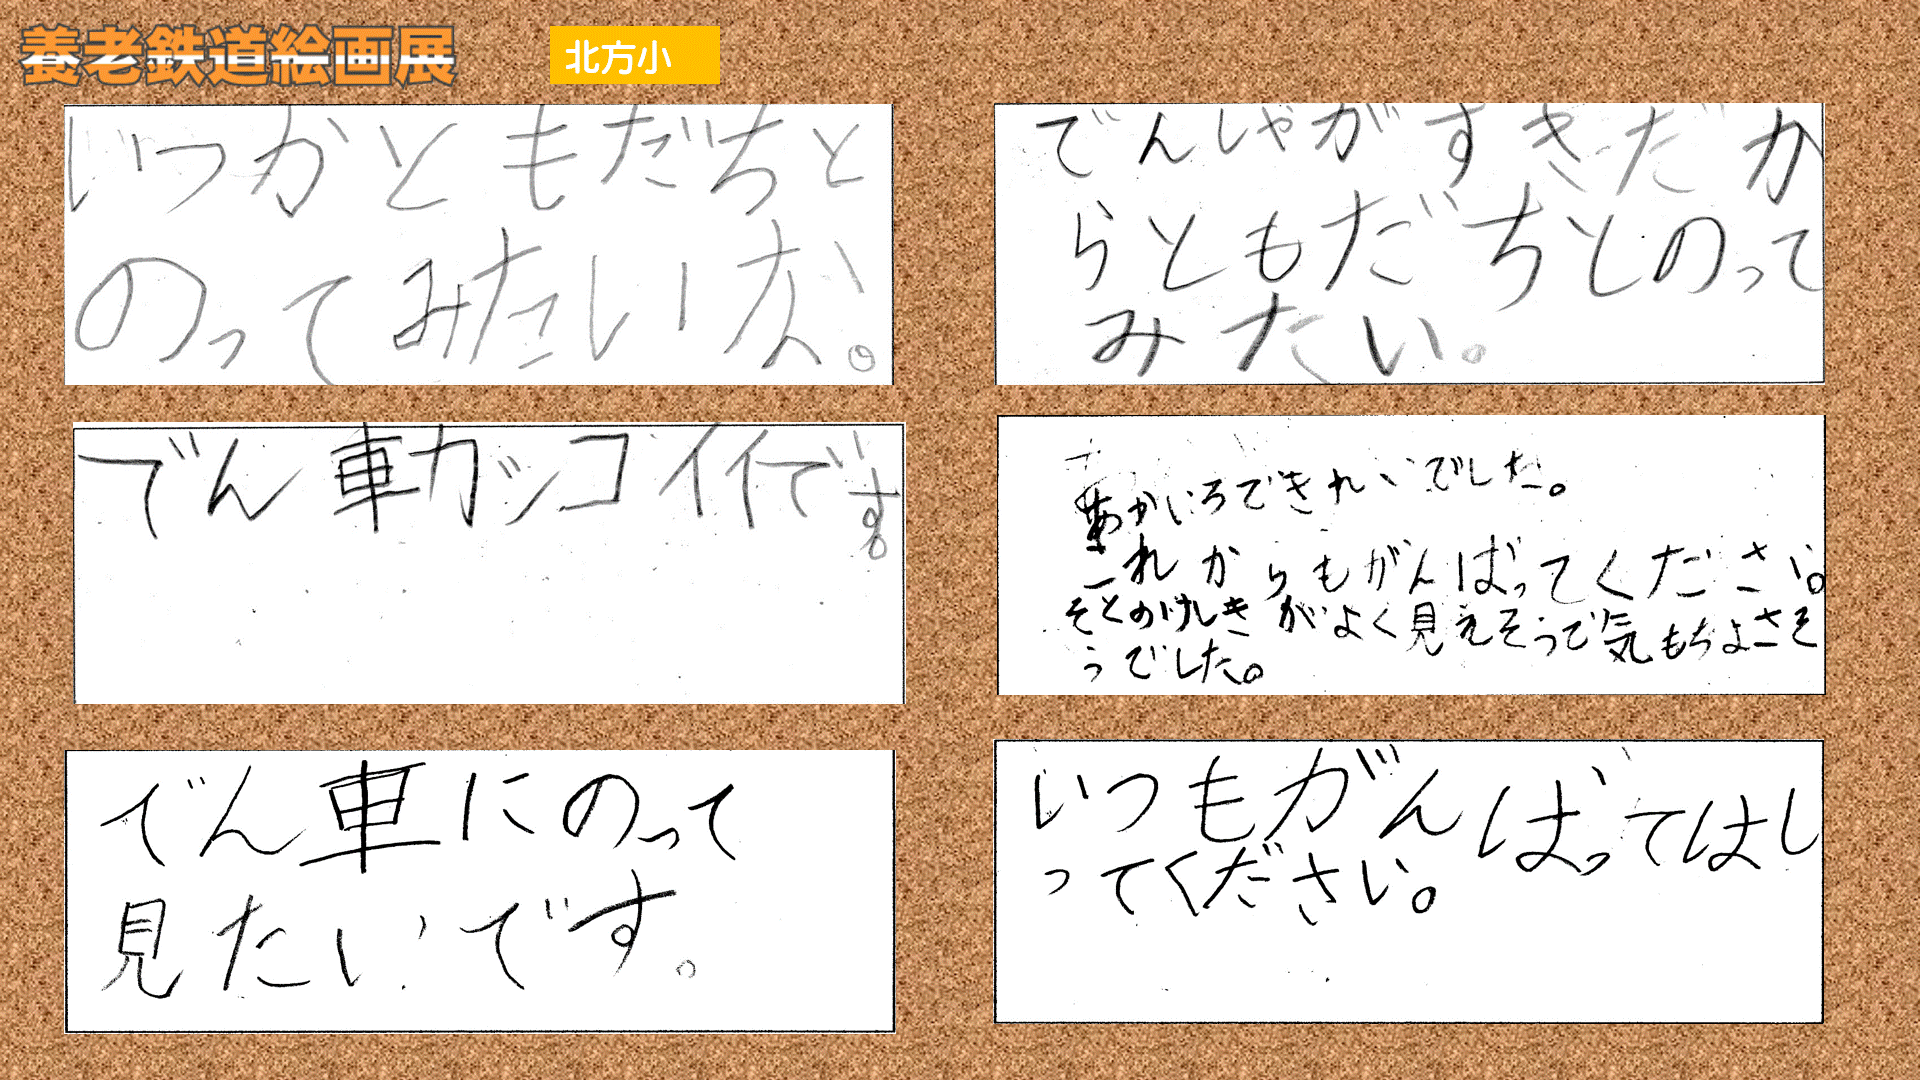 養老鉄道絵画展
北方小
いつかともだちと
のってみたいな。
でんしゃがすきだか
らともだちとのって
みたい。
でん車カッコイイです。
あかいろできれいでした。
これからもがんばってください。
そとのけしきがよく見えそうで気もちよさそ
うでした。
でん車にのって
見たいです。
いつもがんばってはし
ってください。